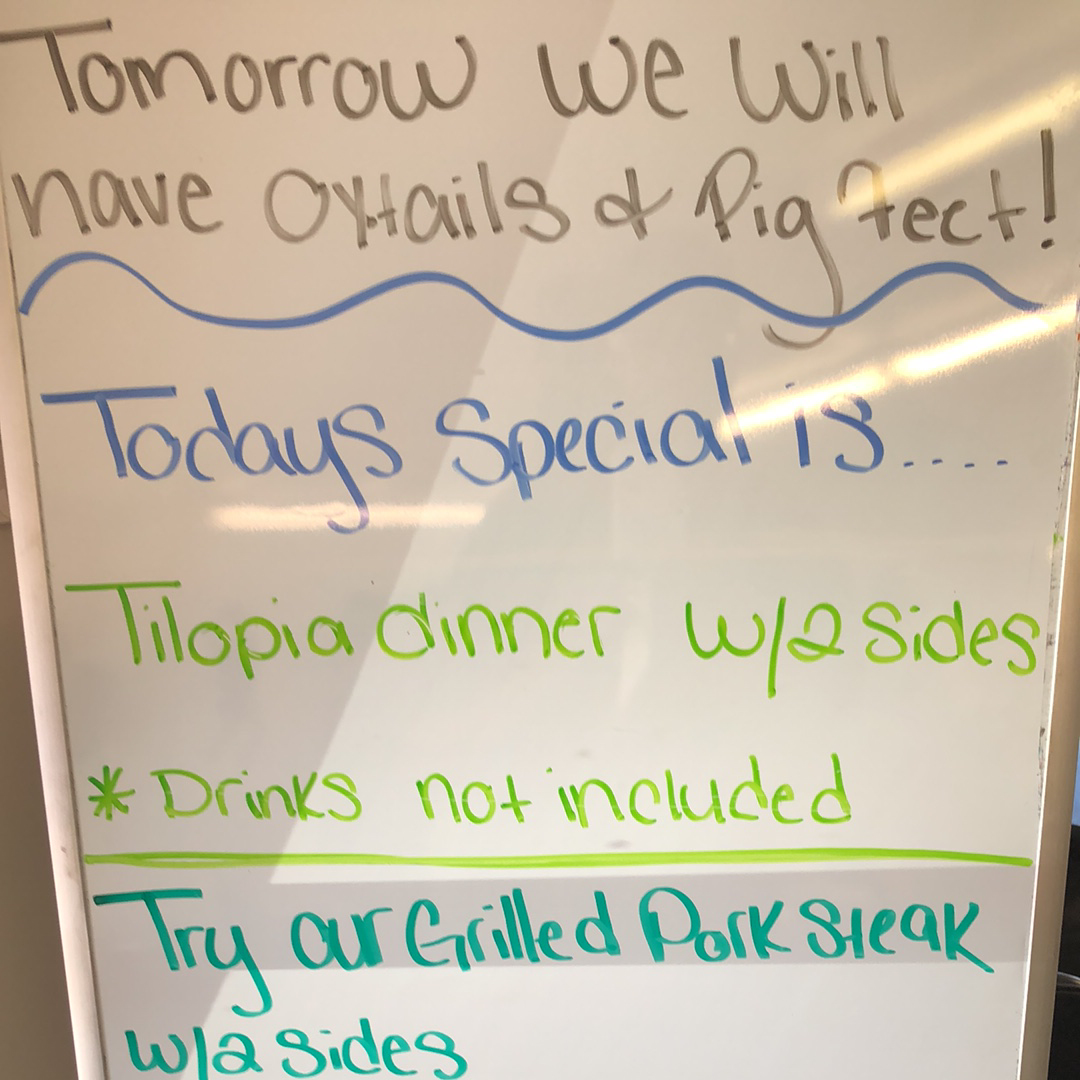 Tomorrow we Will
have Oxtails & Pig feet!
Todays Special is....
Tilopia dinner w/2 Sides
* Drinks not included
Try our Grilled Pork Steak
w/2 Sides